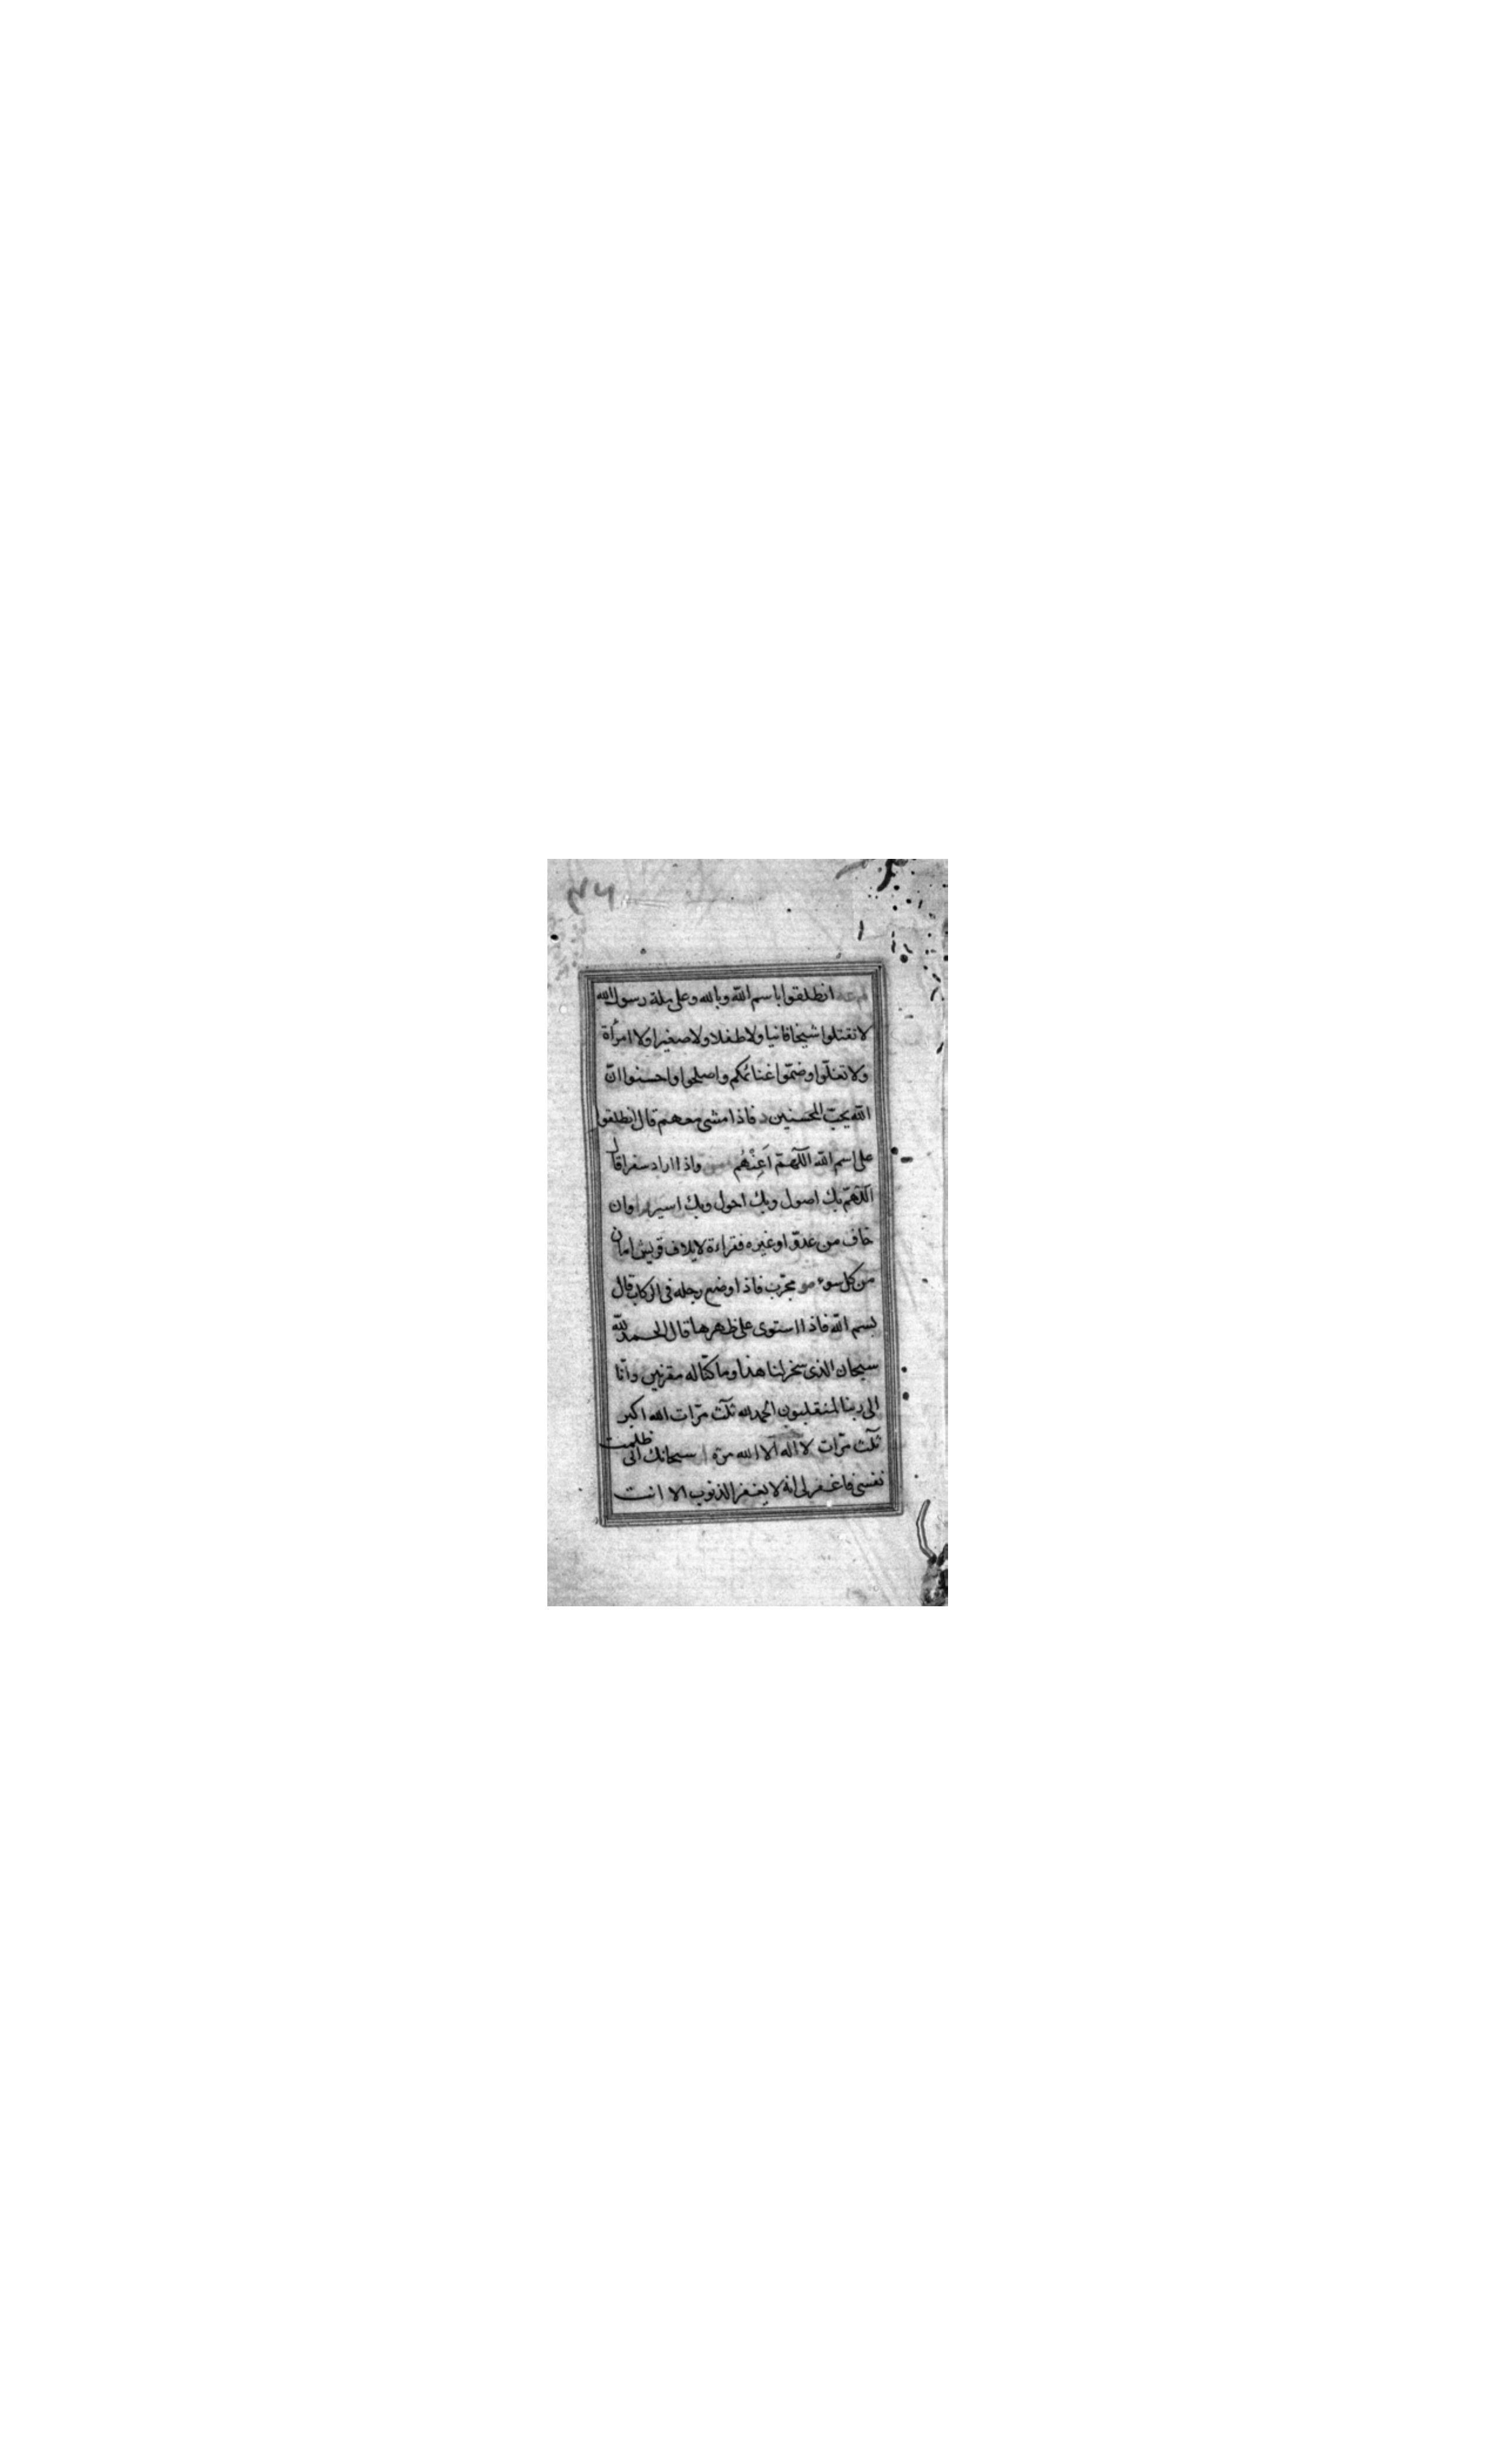 انطلقوا باسم الله وبالله وعلى ملة رسول الله
لا تقتلوا شيخا فانيا ولا طفلا ولا صغيرا ولا امرأة
ولا تغلّوا وضمّوا غنائمكم واصلحوا واحسنوا انّ
الله يحبّ المحسنين د فاذا مشى معهم قال انطلقوا
على اسم الله اللّهمّ اَعِنْهُم واذا اراد سفرا قال
اللّهمّ بك اصول وبك احول وبك اسير وان
خاف من عدوّ او غيره فقراءة لايلاف قريش امان
من كل سوء مو مجرّب فاذا وضع رجله فى الركاب قال
بسم الله فاذا استوى على ظهرها قال الحمد لله
سبحان الذى سخر لنا هذا وما كنّا له مقرنين وانّا
الى ربنا لمنقلبون الحمد لله ثلث مرّات الله اكبر
ثلث مرّات لا اله الا الله مرّة ا سبحانك انّى ظلمت
نفسى فاغفر لى انه لا يغفر الذنوب الا انت